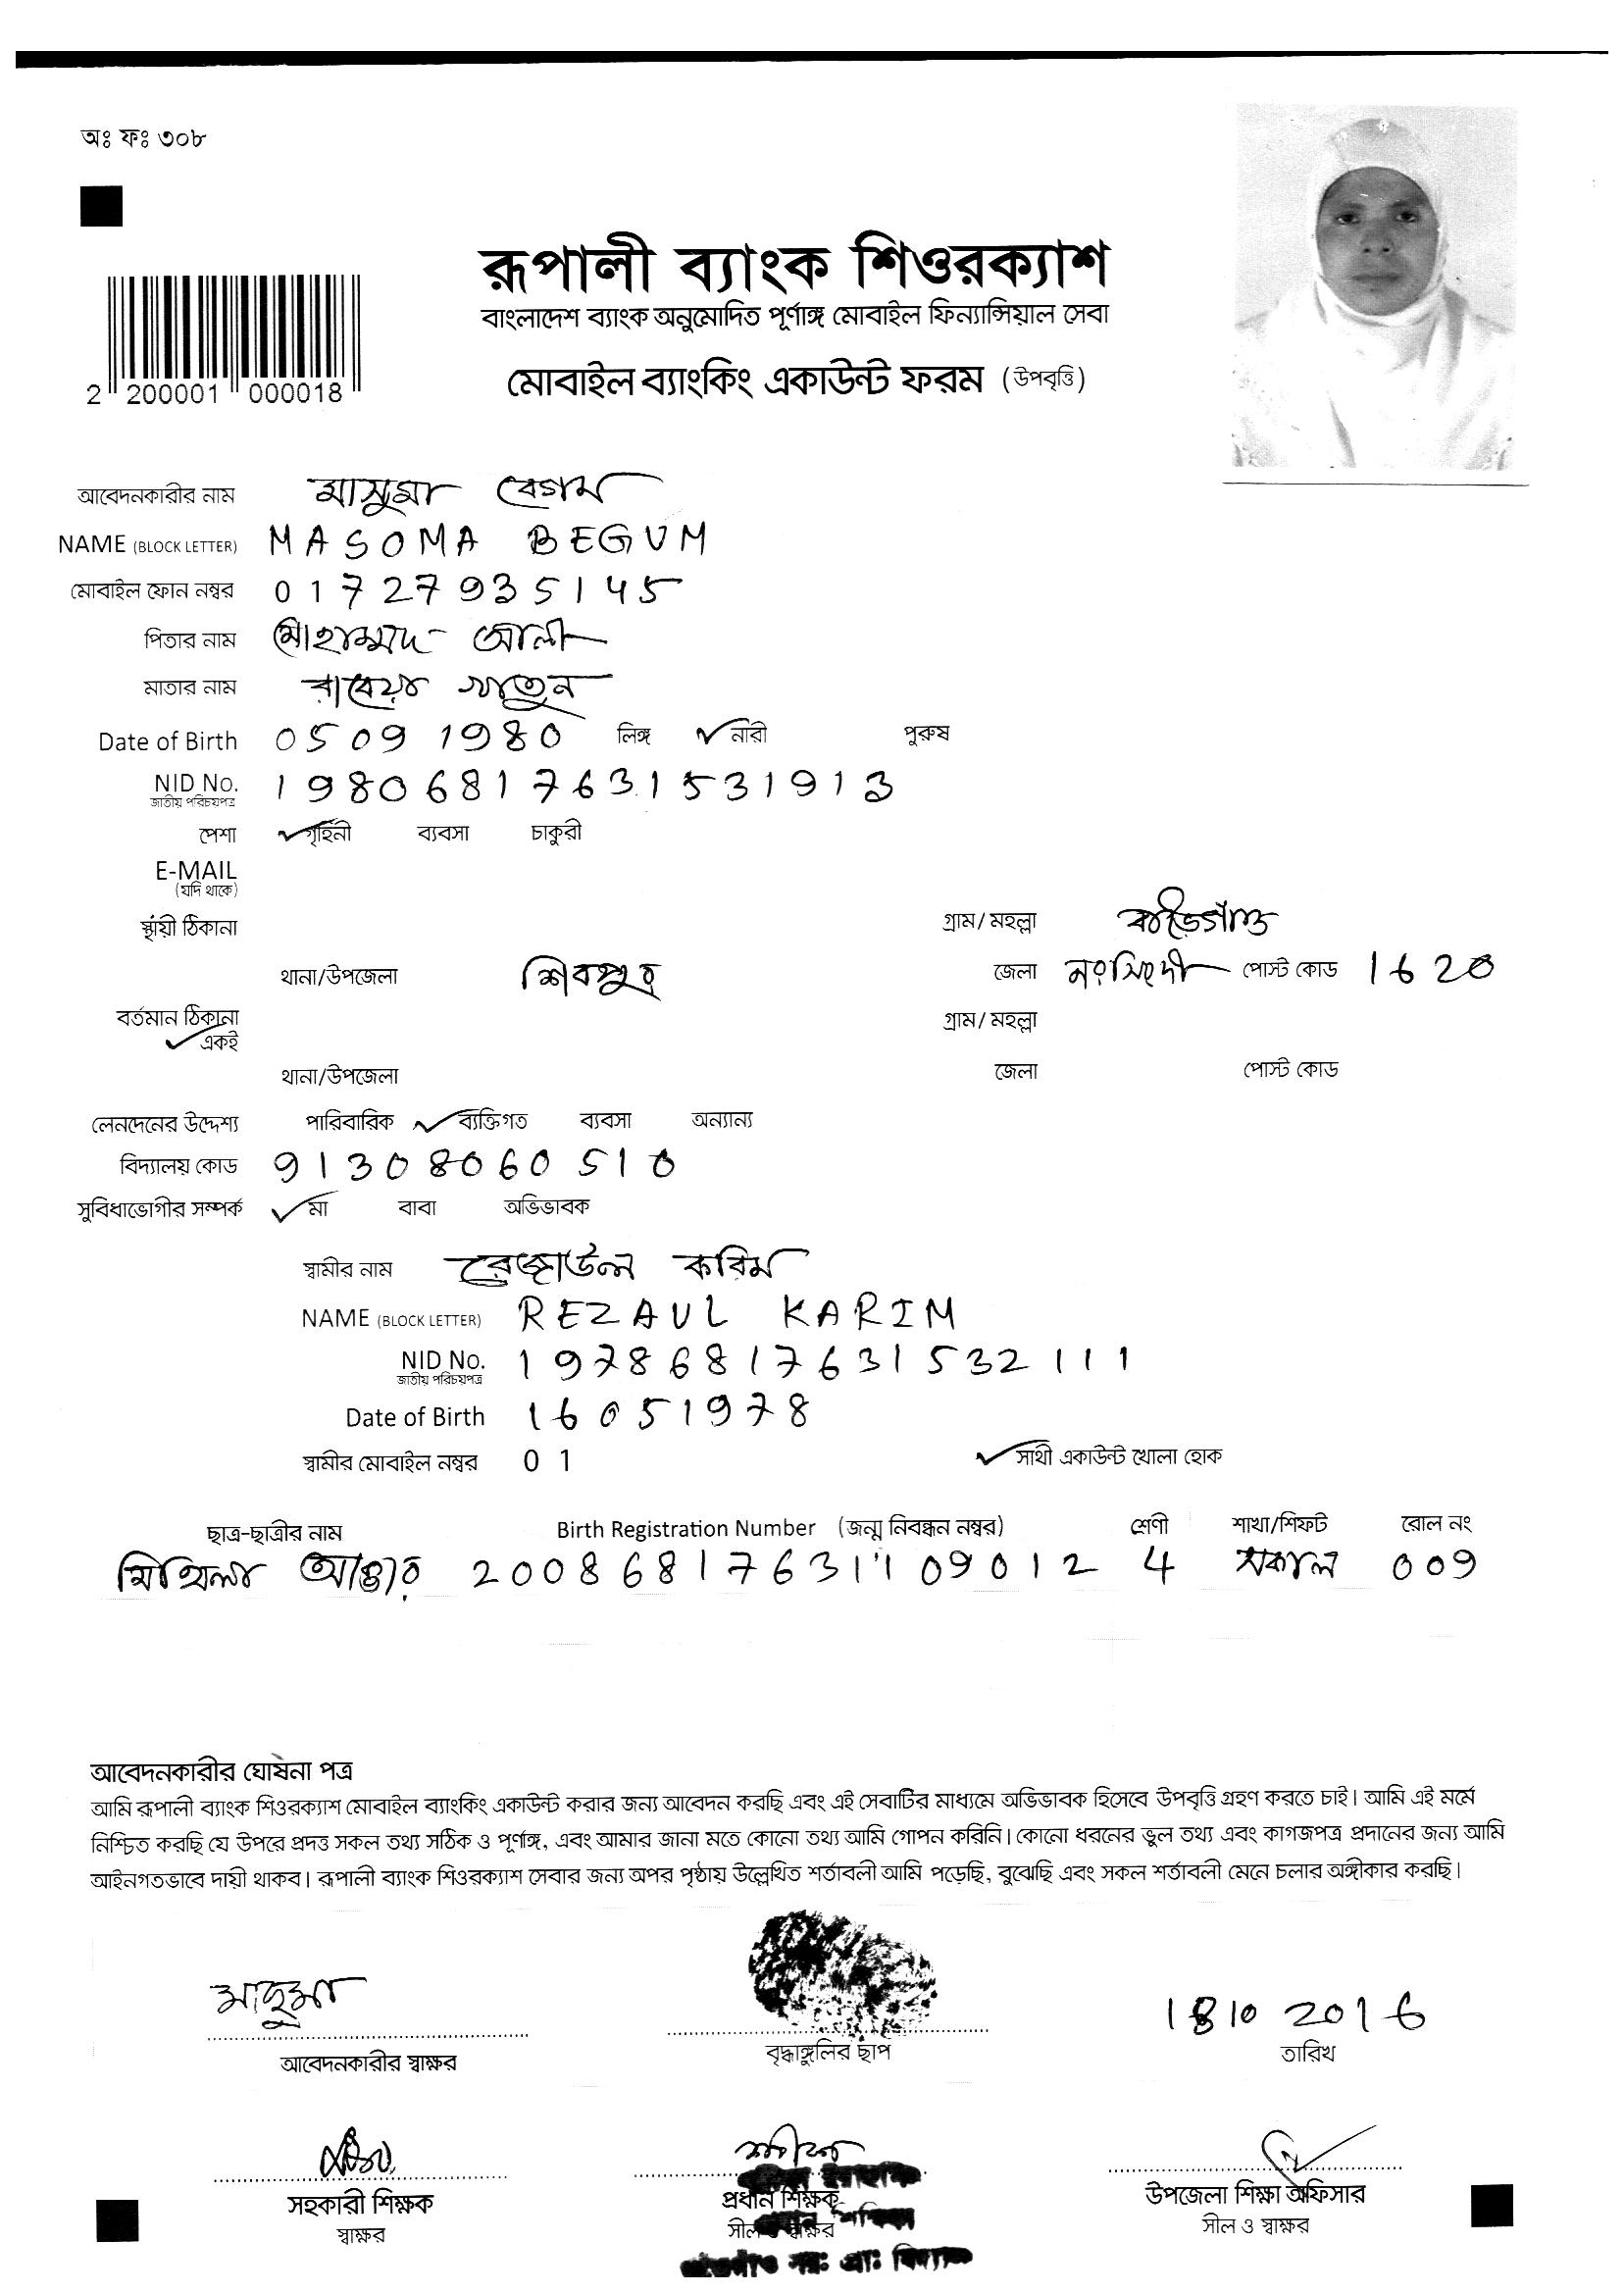 অঃ ফঃ ৩০৮
রূপালী ব্যাংক শিওরক্যাশ
বাংলাদেশ ব্যাংক অনুমোদিত পূর্ণাঙ্গ মোবাইল ফিন্যান্সিয়াল সেবা
মোবাইল ব্যাংকিং একাউন্ট ফরম (উপবৃত্তি)
2 200001 000018
আবেদনকারীর নাম মাসুমা বেগম
NAME (BLOCK LETTER) MASOMA BEGUM
মোবাইল ফোন নম্বর 01727935145
পিতার নাম মোহাম্মদ আলী
মাতার নাম রাবেয়া খাতুন
Date of Birth 05 09 1980 লিঙ্গ নারী পুরুষ
NID No. 19806817631531913
জাতীয় পরিচয়পত্র
পেশা গৃহিনী ব্যবসা চাকুরী
E-MAIL
(যদি থাকে)
স্থায়ী ঠিকানা গ্রাম/ মহল্লা
থানা/উপজেলা শিবপুর জেলা নরসিংদী পোস্ট কোড 1620
বর্তমান ঠিকানা গ্রাম/ মহল্লা
একই
থানা/উপজেলা জেলা পোস্ট কোড
লেনদেনের উদ্দেশ্য পারিবারিক ব্যক্তিগত ব্যবসা অন্যান্য
বিদ্যালয় কোড 91308060510
সুবিধাভোগীর সম্পর্ক মা বাবা অভিভাবক
স্বামীর নাম রেজাউল করিম
NAME (BLOCK LETTER) REZAUL KARIM
NID No. 19786817631532111
জাতীয় পরিচয়পত্র
Date of Birth 16051978
স্বামীর মোবাইল নম্বর 01 সাথী একাউন্ট খোলা হোক
ছাত্র-ছাত্রীর নাম Birth Registration Number (জন্ম নিবন্ধন নম্বর) শ্রেণী শাখা/শিফট রোল নং
আক্তার 20086817631109012 4 সকাল 009
আবেদনকারীর ঘোষনা পত্র
আমি রূপালী ব্যাংক শিওরক্যাশ মোবাইল ব্যাংকিং একাউন্ট করার জন্য আবেদন করছি এবং এই সেবাটির মাধ্যমে অভিভাবক হিসেবে উপবৃত্তি গ্রহণ করতে চাই। আমি এই মর্মে
নিশ্চিত করছি যে উপরে প্রদত্ত সকল তথ্য সঠিক ও পূর্ণাঙ্গ, এবং আমার জানা মতে কোনো তথ্য আমি গোপন করিনি। কোনো ধরনের ভুল তথ্য এবং কাগজপত্র প্রদানের জন্য আমি
আইনগতভাবে দায়ী থাকব। রূপালী ব্যাংক শিওরক্যাশ সেবার জন্য অপর পৃষ্ঠায় উল্লেখিত শর্তাবলী আমি পড়েছি, বুঝেছি এবং সকল শর্তাবলী মেনে চলার অঙ্গীকার করছি।
মাছুমা 18 10 2016
আবেদনকারীর স্বাক্ষর বৃদ্ধাঙ্গুলির ছাপ তারিখ
সহকারী শিক্ষক প্রধান শিক্ষক উপজেলা শিক্ষা অফিসার
স্বাক্ষর সীল ও স্বাক্ষর সীল ও স্বাক্ষর
সরঃ প্রাঃ